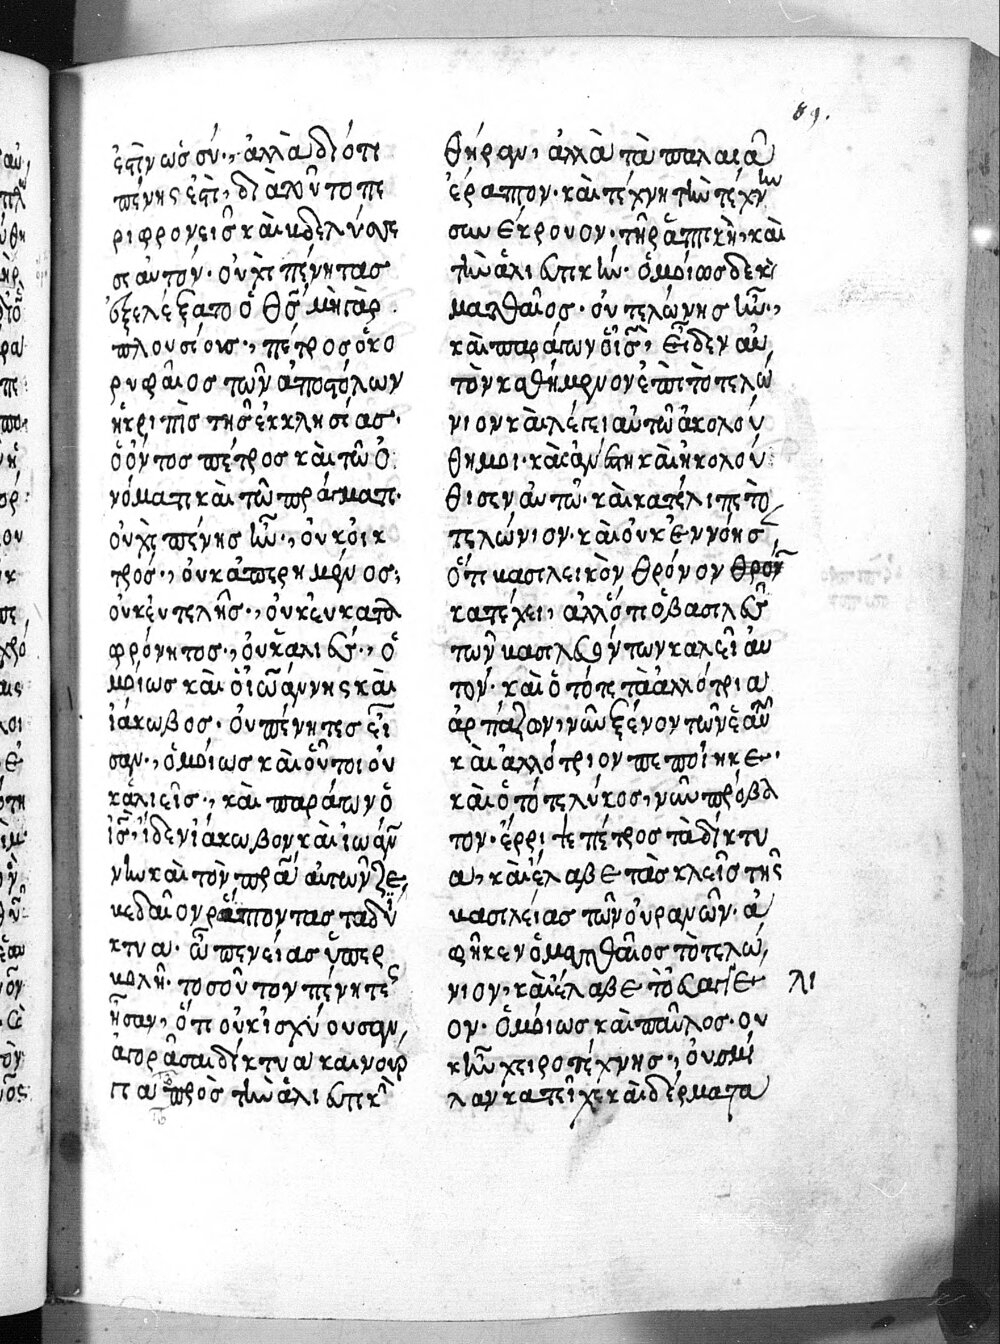 89.
ἐστὶν ὡς σύ·, ἀλλὰ διότι
πένης ἐστὶ, διὰ τοῦτο πε
ριφρονεῖς καὶ βδελύσσε
σαι αὐτόν· οὐχὶ πένητας
ἐξελέξατο ὁ θς̅ μὴ γὰρ
πλουσίους·, πέτρος ὁ κο
ρυφαῖος τῶν ἀποστόλων
ἡ κρηπὶς τῆς ἐκκλησίας·
ὁ ὄντως πέτρος καὶ τῶ ὀ
νόματι καὶ τῶ πράγματι·
οὐχὶ πένης ἦν·, οὐκ οἰκ
τρός·, οὐκ ἀπερημένος;
οὐκ εὐτελής·, οὐκ εὐκατα
φρόνητος·, οὐχ ἁλιεύς·, ὁ
μοίως καὶ ὁ ἰωάννης καὶ
ἰάκωβος· οὐ πένητες εἶ
σαν·, ὁμοίως καὶ οὗτοι οὐ
καλιεῖς·, καὶ παράγων ὁ
ις̅, ἴδεν ἰάκωβον καὶ ἰωάν
νην καὶ τὸν πρα̅ αὐτῶν ζε
βεδαῖον ῥάπτοντας τα δί
κτυα· ὢ πενείας ὑπερ
βολή· τοσοῦτον πένητες
ἦσαν, ὅτι οὐκ ἰσχύουσαν,
ἀγοράσαι δίκτυα καινούρ
για πρὸς τὴν ἁλιευτικὴ
θήραν, ἀλλὰ τὰ παλαιὰ
ἔραπτον· καὶ τέχνη τὴν τέχνην
συνέκρουον· τῆ ῥαπτικῆ, καὶ
τὴν ἁλιευτικήν· ὁμοίως δε κ
ματθαῖος· οὐ τελώνης ἦν·,
καὶ παράγων ὁ ις̅, εἶδεν αὐ
τὸν καθήμενον ἐπὶ τὸ τελώ
νιον καὶ λέγει αὐτῶ ἀκολού
θη μοι· καὶ ἀνέστη καὶ ἠκολού
θισεν αὐτῶ· καὶ κατέλιπε τὸ
τελώνιον· καὶ οὐκ ἐννόησ
ὅτι βασιλεικὸν θρόνον θρόν
κατέχει, ἀλλ' ὅτι ὁ βασιλεὺς
τῶν βασιλευόντων καλεῖ αὐ
τόν· καὶ ὁ τότε τὰ ἀλλότρια
ἁρπάζων, νῦν ξένον τῶν ἑαυ
καὶ ἀλλότριον πεποίηκε·
καὶ ὁ τότε λύκος, νῦν πρόβα
τον· ἔρριτε πέτρος τὰ δίκτυ
α, καὶ ἔλαβε τὰς κλεῖς τῆς
βασιλείας τῶν οὐρανῶν· ἀ
φῆκεν ὁ ματθαῖος τὸ τελώ
νιον, καὶ ἔλαβε τὸ εὐαγγέ λι
ον· ὁμοίως καὶ παῦλος· οὐ
κ ἦν χειροτέχνης·, οὐ σμί
λαν κατεῖχε καὶ δέρματα